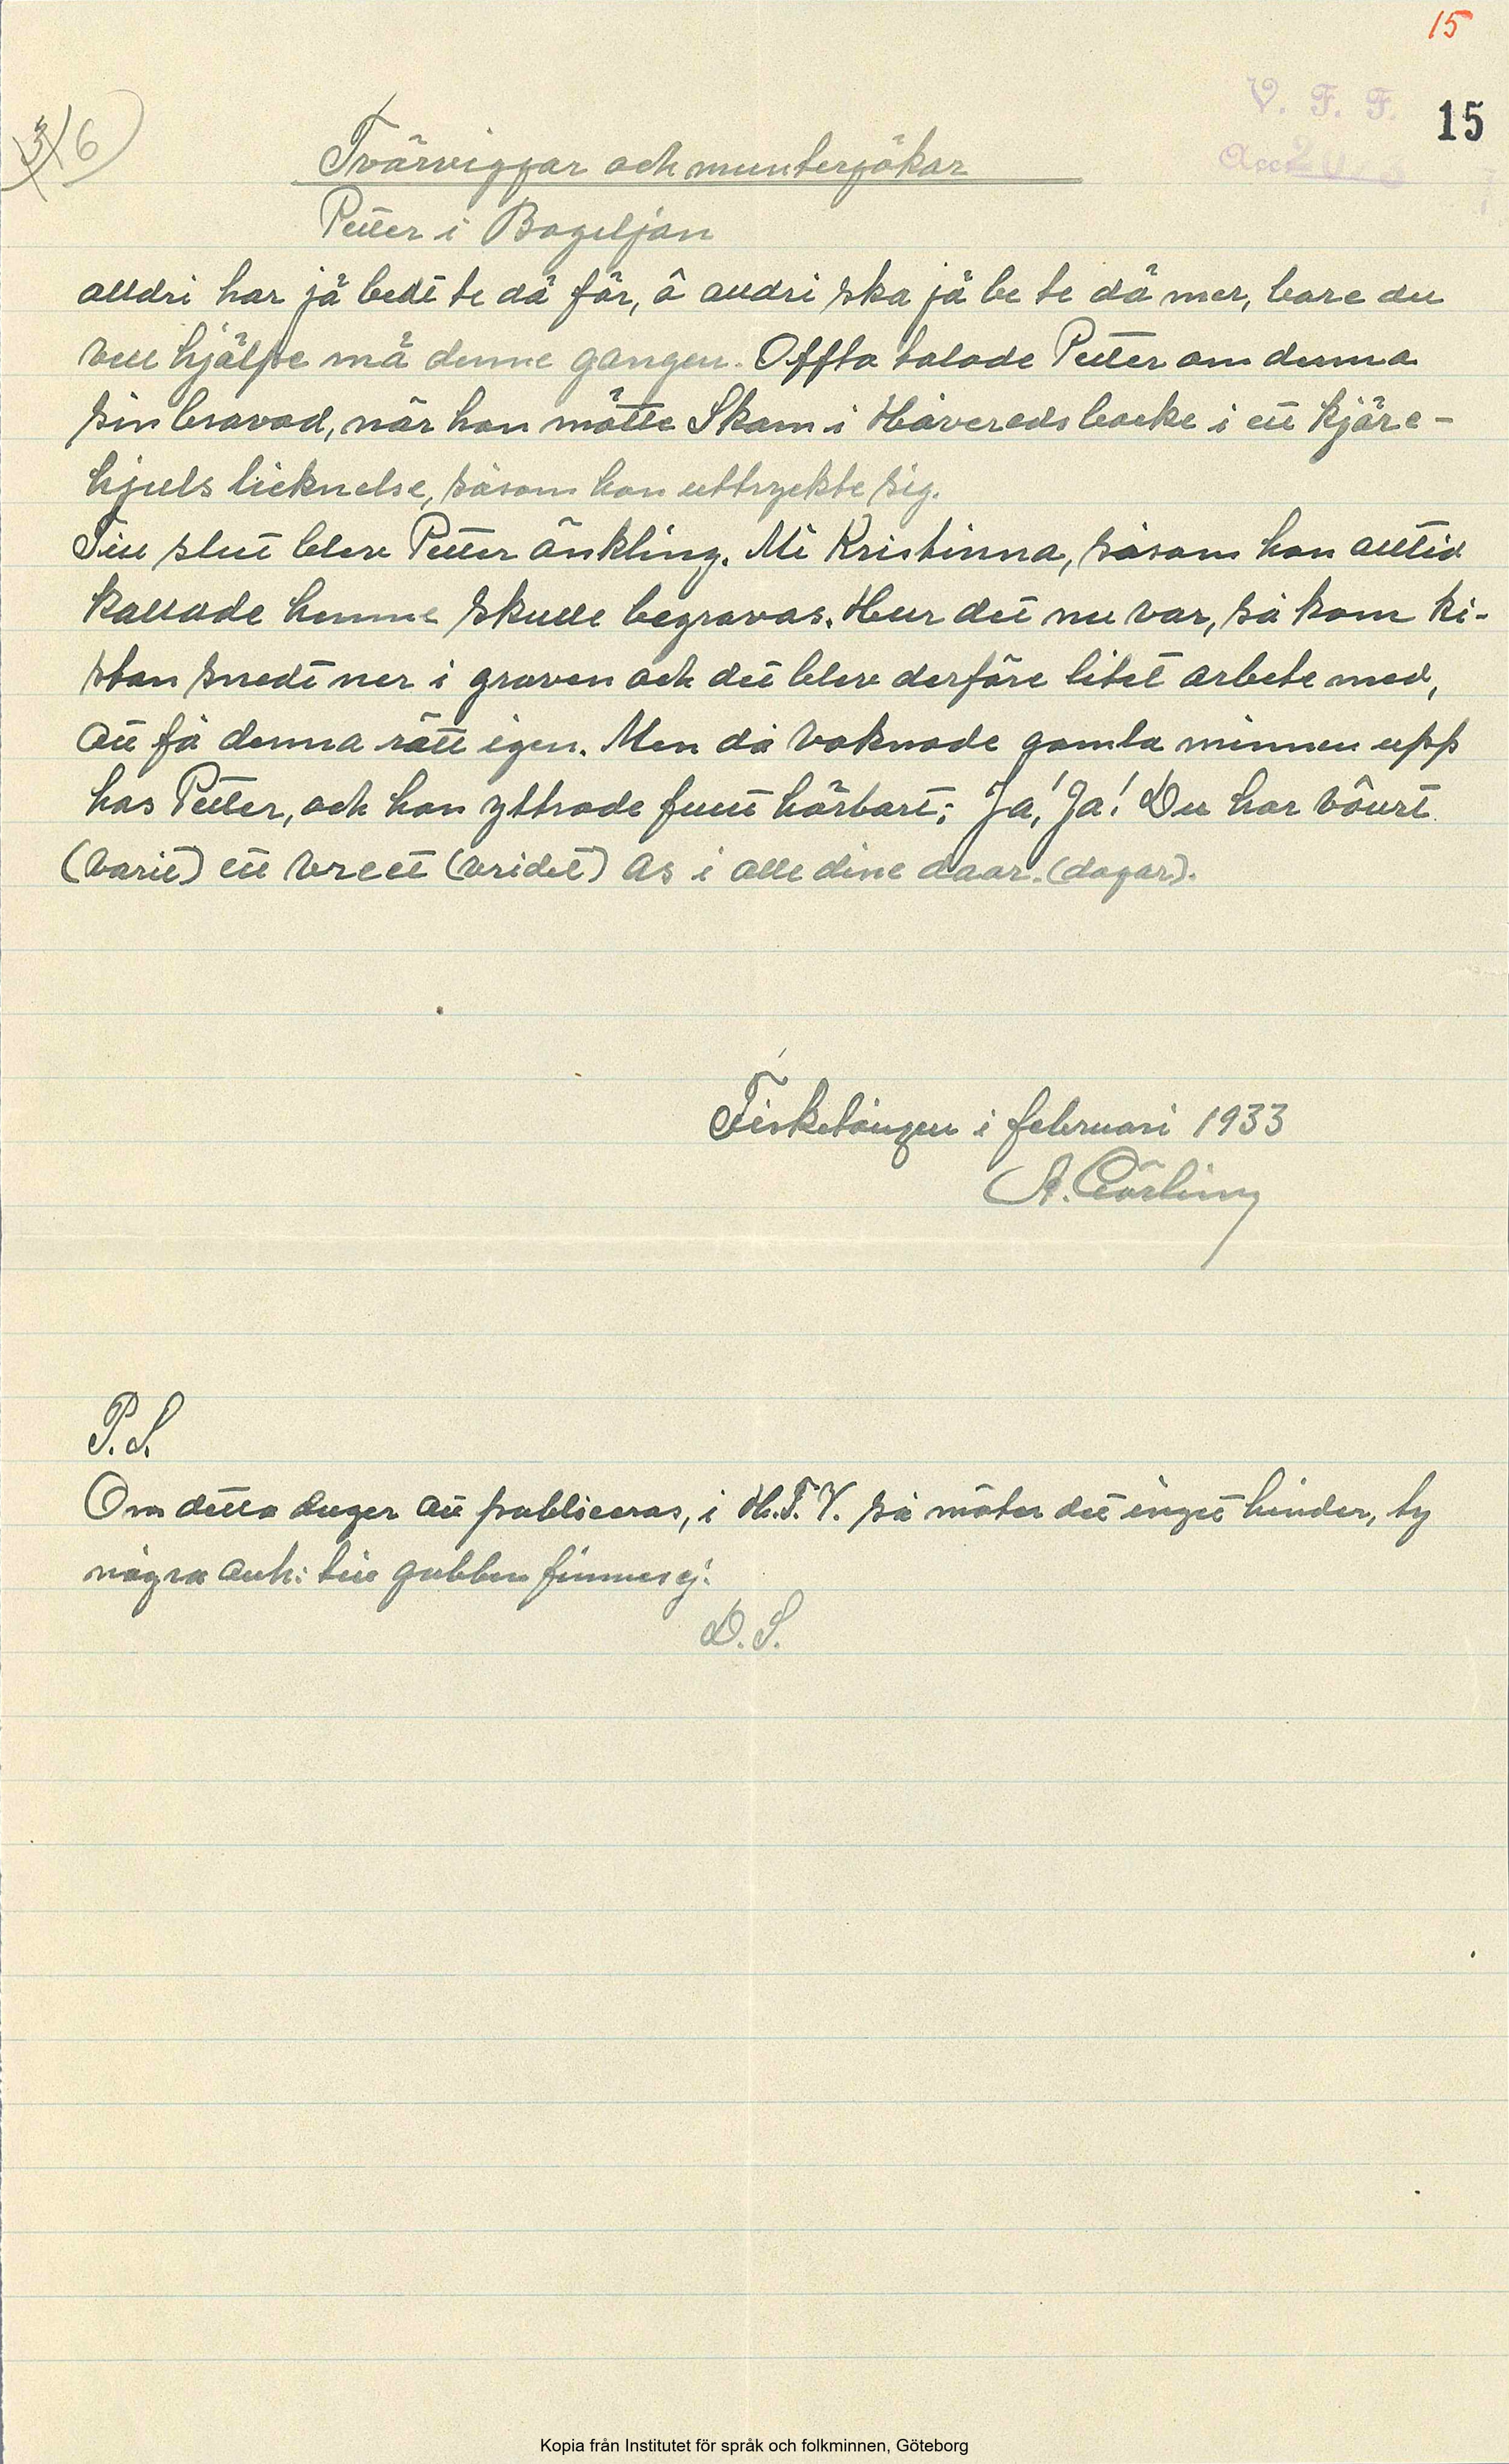 15
V. F. F. 15
3 6
Tvärviggar och muntergökar
Petter i Bogeljan
alldri har jâ bedt te dâ för, â alldri ska jâ be te dâ mer, bare du
vell hjälpe mâ denne gangen. Offta talade Petter om denna
sin bravad, när han mötte Skam i Håvereds backe i ett kjäre-
hjuls lieknelse, såsom han uttryckte sig.
Till slut blev Petter änkling. Mi Kristinna, såsom han alltid
kallade henne skulle begravas. Hur det nu var, så kom ki-
stan snedt ner i graven och det blev derföre litet arbete med,
att få denna rätt igen. Men då vaknade gamla minnen upp
hos Petter, och han yttrade fullt hörbart; Ja,! Ja! Du har vôurt
(varit) ett vreet (vridet) as i alle dine daar. (dagar).
Fisketången i februari 1933
A. Cörling
P.S.
Om detta duger att publiceras, i H.T.V. så möter det inget hinder, ty
några anh: till gubben finnes ej.
D.S.
Kopia från Institutet för språk och folkminnen, Göteborg